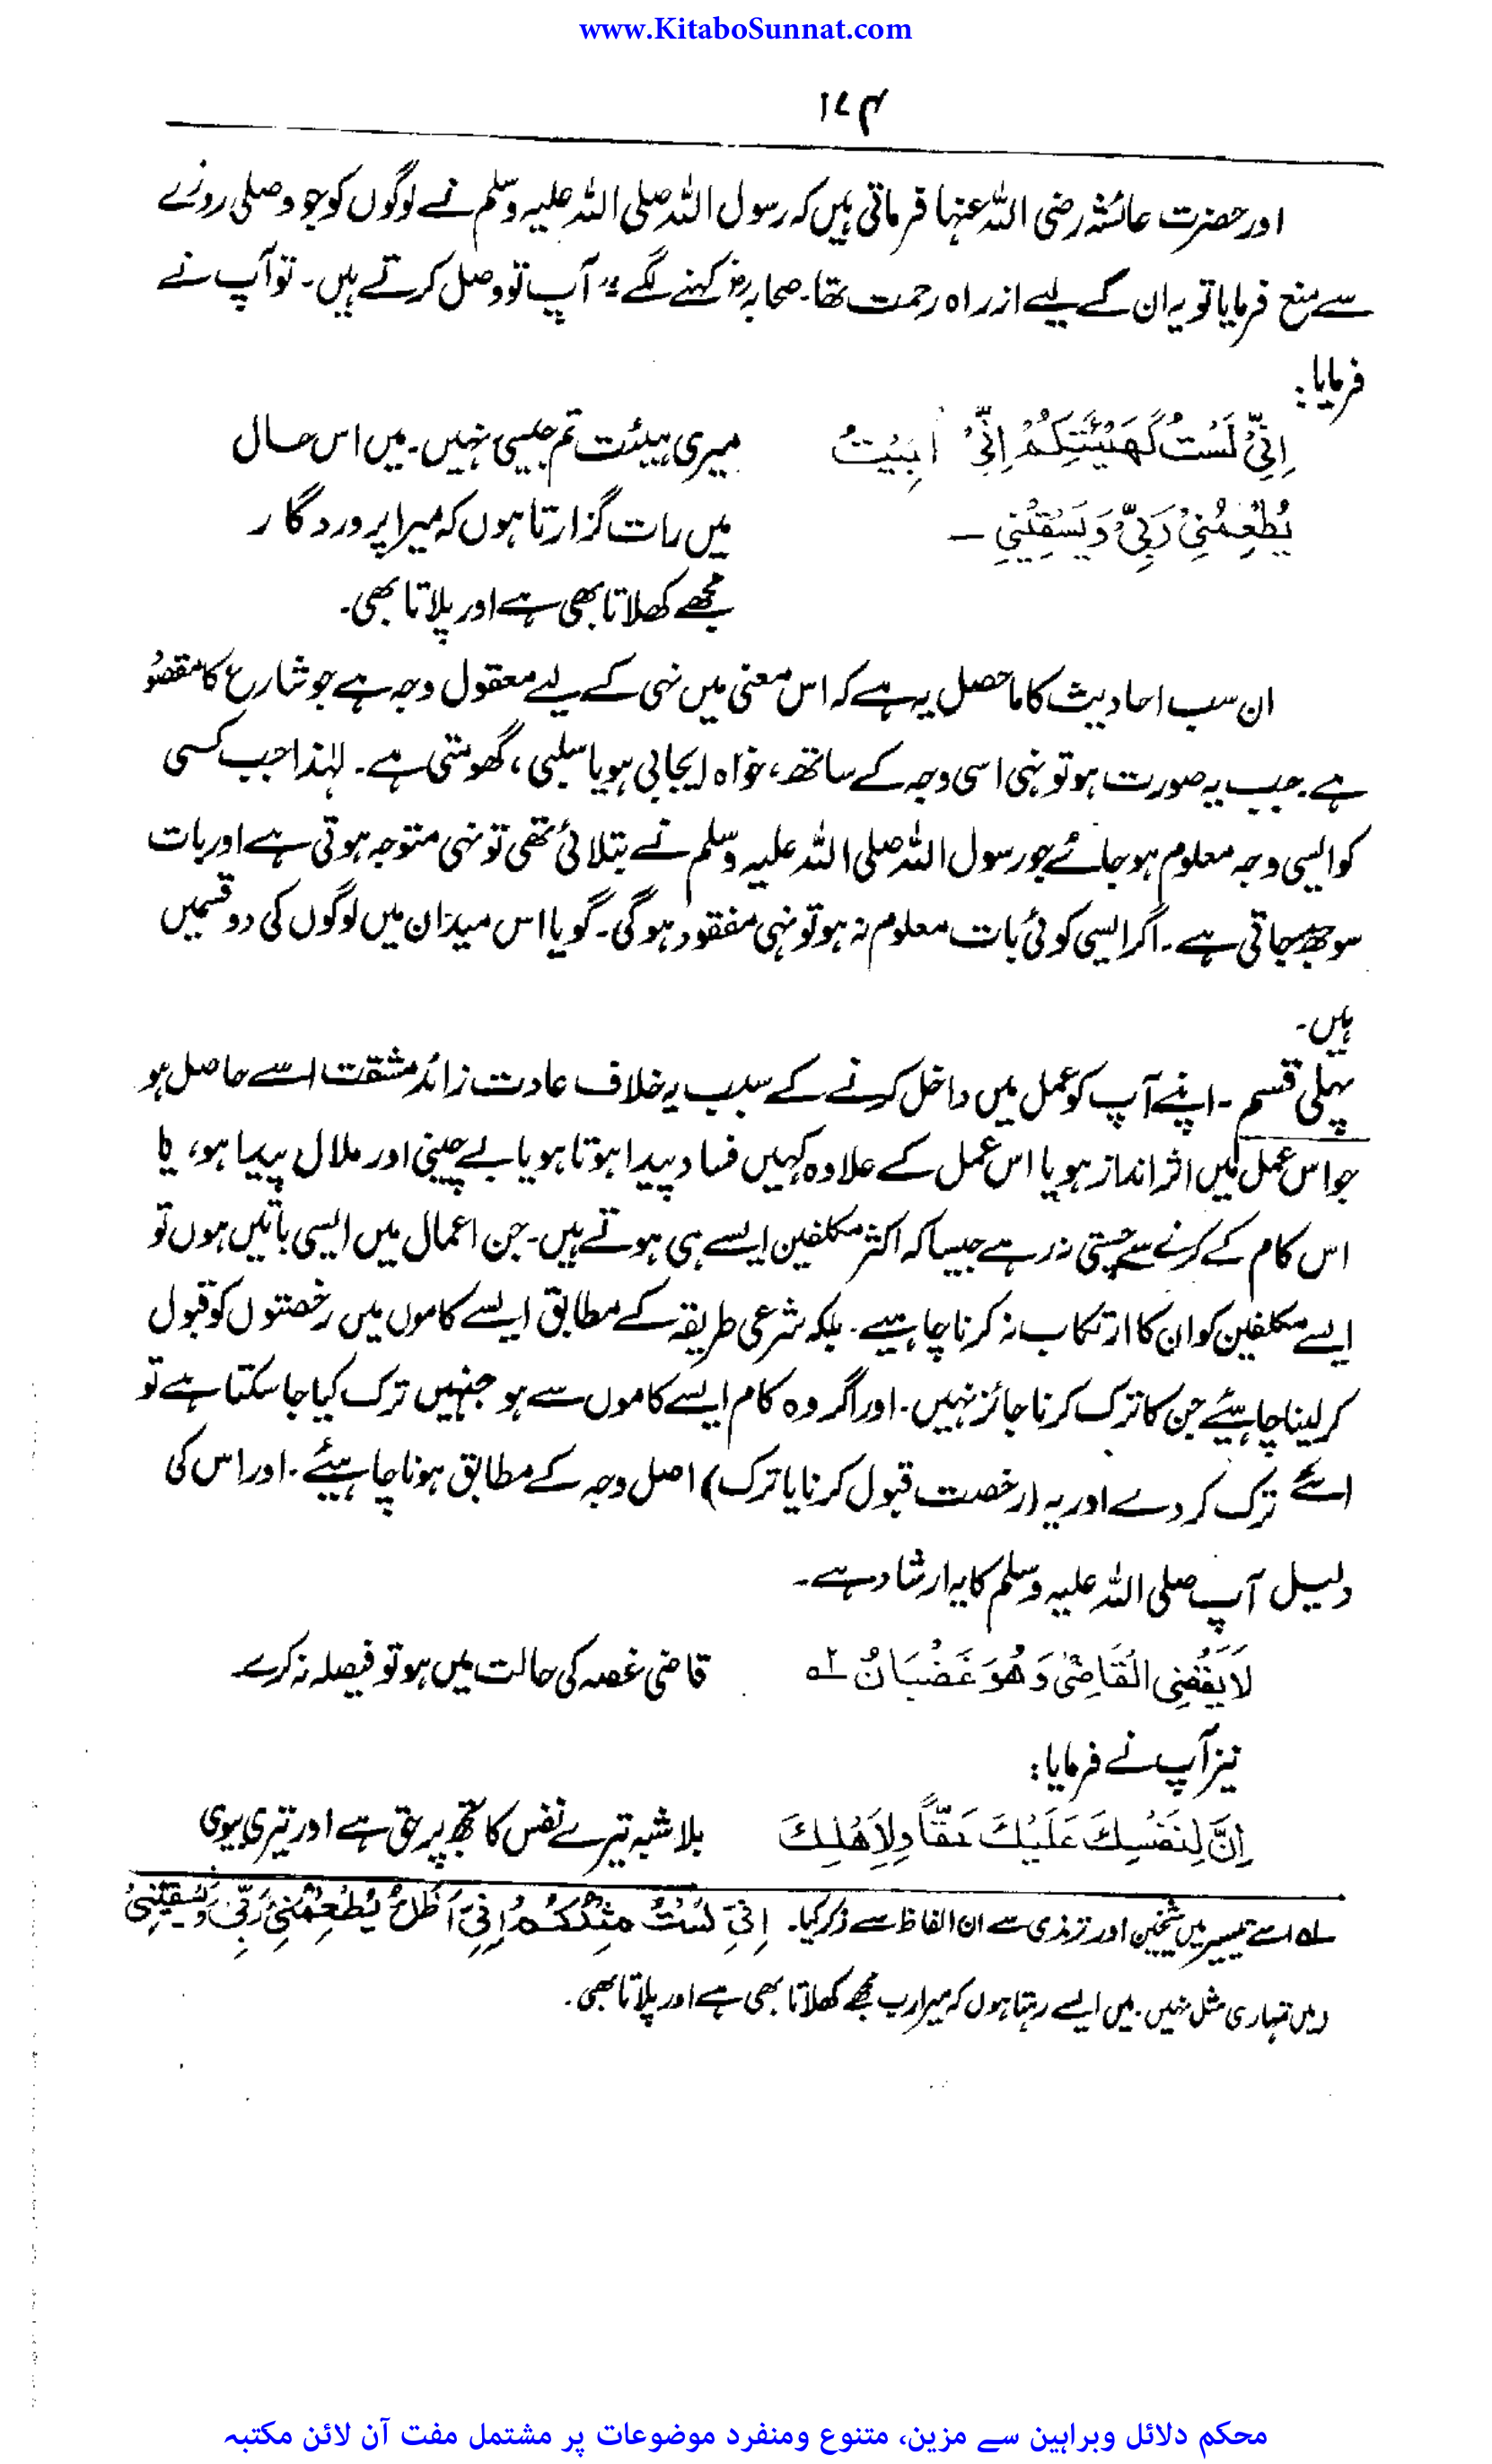 www.KitaboSunnat.com
۱۷۴
اور حضرت عائشہ رضی اللہ عنہا فرماتی ہیں کہ رسول اللہ صلی اللہ علیہ وسلم نے لوگوں کو جو وصلی روزے
سے منع فرمایا تو یہ ان کے لیے ازراہ رحمت تھا۔ صحابہؓ کہنے لگے " آپ تو وصل کرتے ہیں۔ تو آپ نے
فرمایا:
اِنِّیْ لَسْتُ کَهَیْئَتِکُمْ اِنِّیْ اَبِیْتُ
میری ہیئت تم جیسی نہیں۔ میں اس حال
یُطْعِمُنِیْ رَبِّیْ وَیَسْقِیْنِیْ ـ
میں رات گزارتا ہوں کہ میرا پروردگار
مجھے کھلاتا بھی ہے اور پلاتا بھی۔
ان سب احادیث کا ماحصل یہ ہے کہ اس معنی میں نہی کے لیے معقول وجہ ہے جو شارع کا مقصُو
ہے۔ جب یہ صورت ہو تو نہی اسی وجہ کے ساتھ، خواہ ایجابی ہو یا سلبی، گھومتی ہے۔ لہٰذا جب کسی
کو ایسی وجہ معلوم ہو جائے جو رسول اللہ صلی اللہ علیہ وسلم نے بتلائی تھی تو نہی متوجہ ہوتی ہے اور بات
سوجھ جاتی ہے۔ اگر ایسی کوئی بات معلوم نہ ہو تو نہی مفقود ہوگی۔ گویا اس میدان میں لوگوں کی دو قسمیں
ہیں۔
پہلی قسم ۔ اپنے آپ کو عمل میں داخل کرنے کے سبب یہ خلاف عادت زائد مشقت اسے حاصل ہو
جو اس عمل میں اثر انداز ہو یا اس عمل کے علاوہ کہیں فساد پیدا ہوتا ہو یا بے چینی اور ملال پیدا ہو، یا
اس کام کے کرنے سے چستی نہ رہے جیسا کہ اکثر مکلفین ایسے ہی ہوتے ہیں۔ جن اعمال میں ایسی باتیں ہوں تو
ایسے مکلفین کو ان کا ارتکاب نہ کرنا چاہیے۔ بلکہ شرعی طریقہ کے مطابق ایسے کاموں میں رخصتوں کو قبول
کر لینا چاہیئے جن کا ترک کرنا جائز نہیں۔ اور اگر وہ کام ایسے کاموں سے ہو جنہیں ترک کیا جا سکتا ہے تو
اسے ترک کر دے اور یہ (رخصت قبول کرنا یا ترک) اصل وجہ کے مطابق ہونا چاہیئے۔ اور اس کی
دلیل آپ صلی اللہ علیہ وسلم کا یہ ارشاد ہے۔
لَا یَقْضِی الْقَاضِیْ وَهُوَ غَضْبَانُ ۲؎
قاضی غصہ کی حالت میں ہو تو فیصلہ نہ کرے
نیز آپ نے فرمایا:
اِنَّ لِنَفْسِكَ عَلَیْكَ حَقًّا وَلِاَهْلِكَ
بلاشبہ تیرے نفس کا تجھ پر حق ہے اور تیری بیوی
۱؎ اسے تیسیر میں شیخین اور ترمذی سے ان الفاظ سے ذکر کیا۔ اِنِّیْ لَسْتُ مِثْلَکُمْ اِنِّیْ اَظَلُّ یُطْعِمُنِیْ رَبِّیْ وَیَسْقِیْنِیْ
(میں تمہاری مثل نہیں۔ میں ایسے رہتا ہوں کہ میرا رب مجھے کھلاتا بھی ہے اور پلاتا بھی۔
محکم دلائل وبراہین سے مزین، متنوع ومنفرد موضوعات پر مشتمل مفت آن لائن مکتبہ